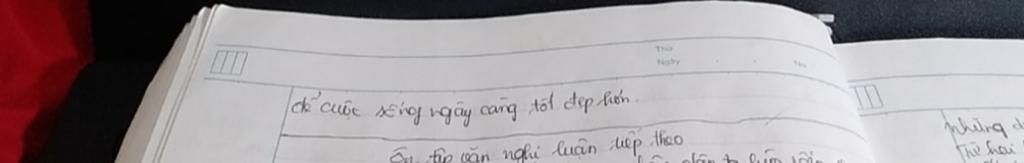 Thứ
Ngày
No
để cuộc sống ngày càng tốt đẹp hơn.
Ôn tập văn nghị luận tiếp theo
những
Thứ hai